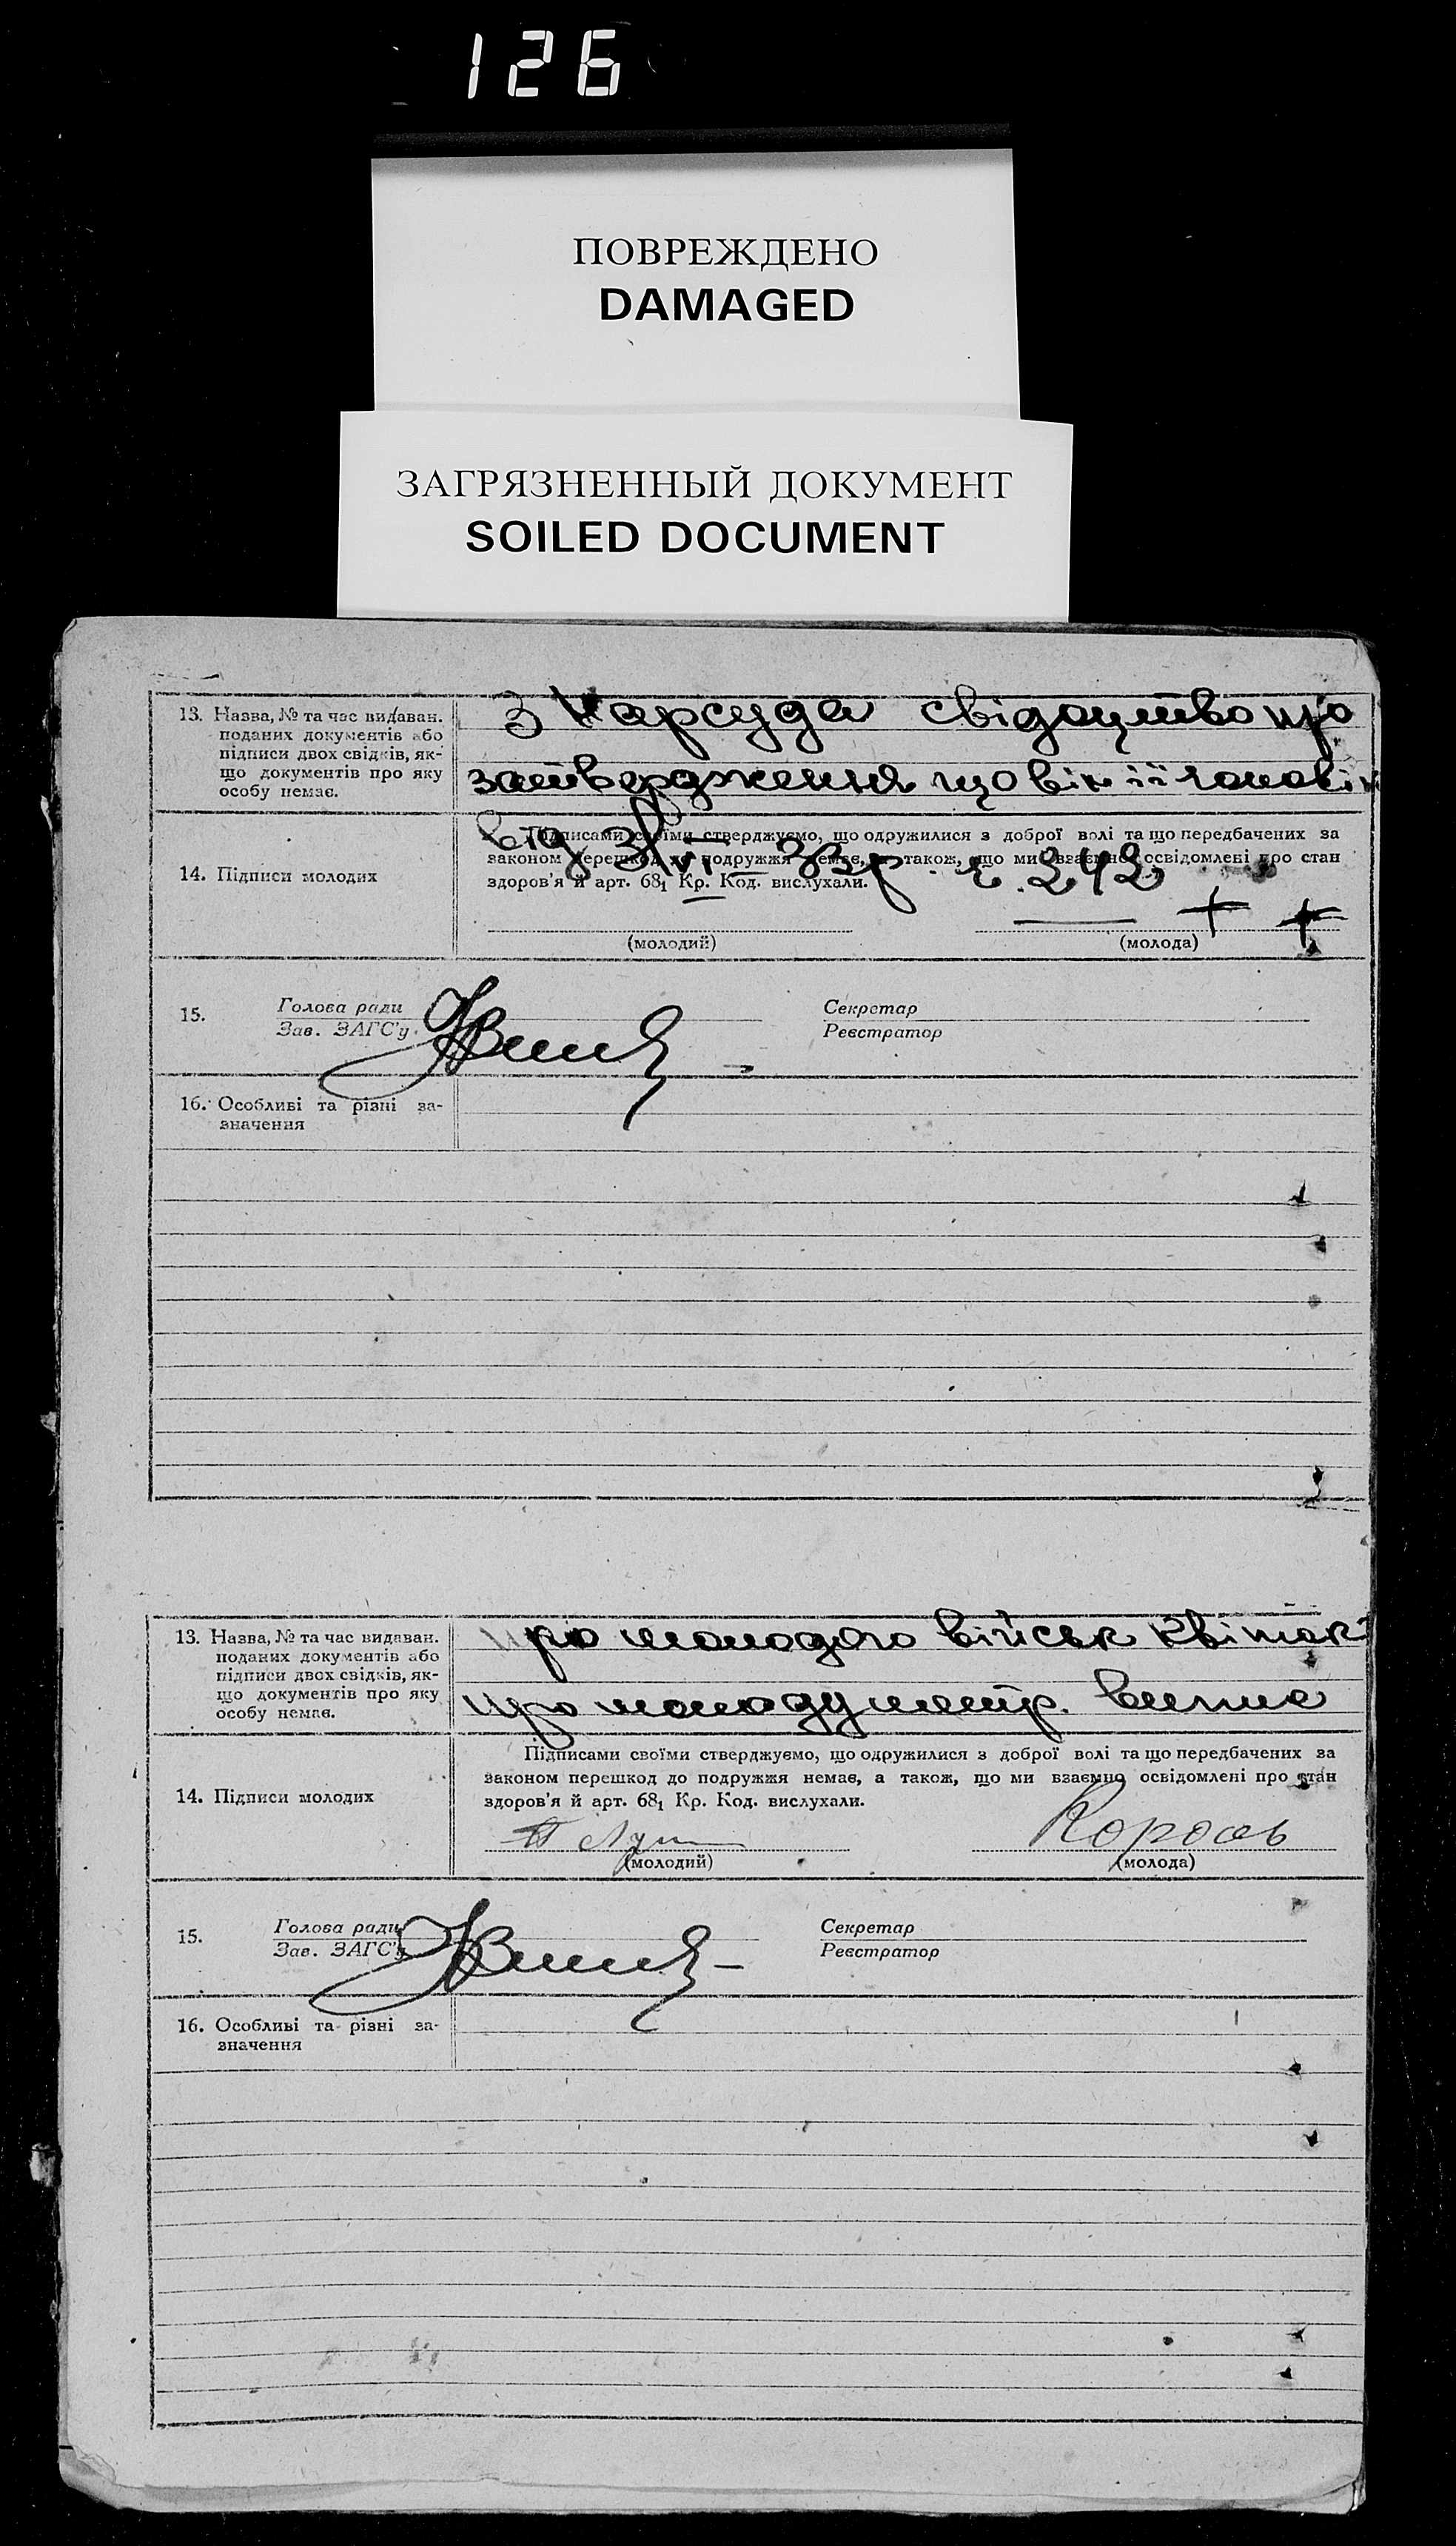 126
ПОВРЕЖДЕНО
DAMAGED
ЗАГРЯЗНЕННЫЙ ДОКУМЕНТ
SOILED DOCUMENT
13. Назва, № та час видаван. поданих документів або підписи двох свідків, якщо документів про яку особу немає.
З Нарсуда свідоцтво про
затвердження що він її чоловік
14. Підписи молодих
від 3/VI 33 р.
Підписами своїми стверджуємо, що одружилися з доброї волі та що передбачених за
законом перешкод до подружжя немає, а також, що ми взаємно освідомлені про стан
здоров'я й арт. 68₁ Кр. Код. вислухали.
+ +
(молодий) (молода)
15. Голова ради Секретар
Зав. ЗАГС'у Реєстратор
16. Особливі та різні за-
значення
13. Назва, № та час видаван.
поданих документів або
підписи двох свідків, як-
що документів про яку
особу немає.
про молодого військ квіток
про молоду метр. випис
14. Підписи молодих
Підписами своїми стверджуємо, що одружилися з доброї волі та що передбачених за
законом перешкод до подружжя немає, а також, що ми взаємно освідомлені про стан
здоров'я й арт. 68₁ Кр. Код. вислухали.
Король
(молодий) (молода)
15. Голова ради Секретар
Зав. ЗАГС'у Реєстратор
16. Особливі та різні за-
значення